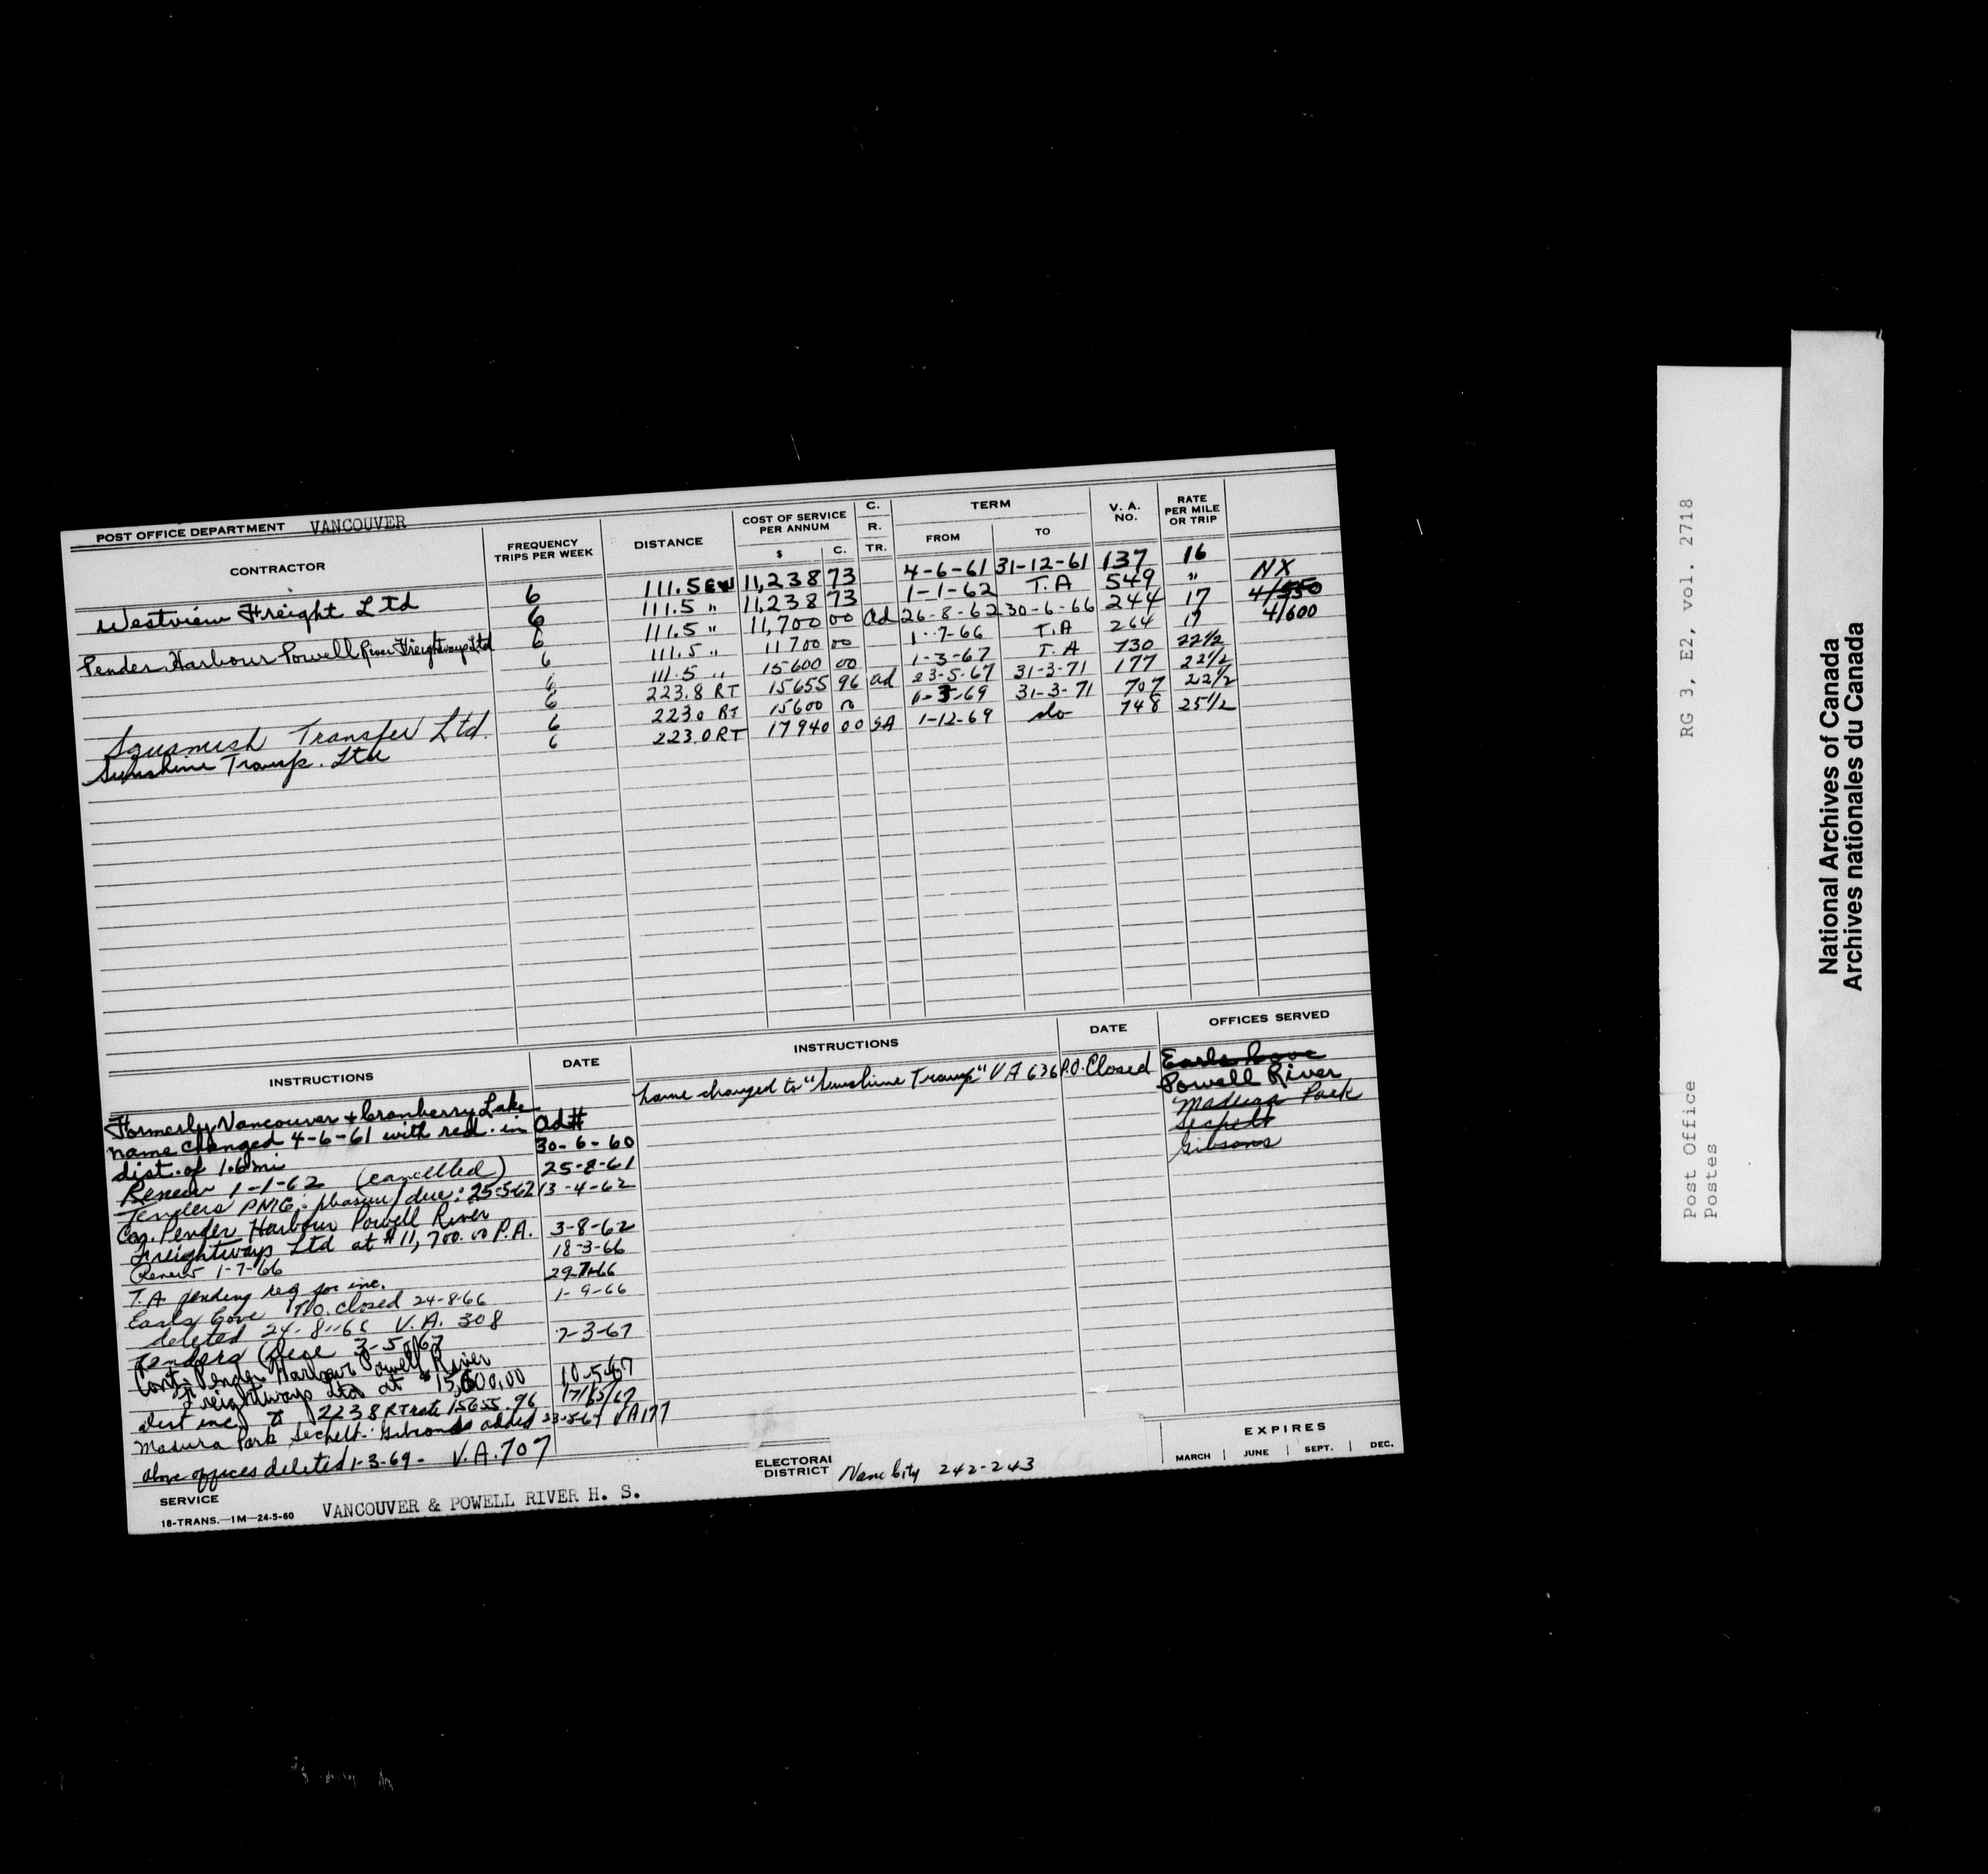 POST OFFICE DEPARTMENT VANCOUVER
CONTRACTOR FREQUENCY TRIPS PER WEEK DISTANCE COST OF SERVICE PER ANNUM $ C. C. R. TR. TERM FROM TO V. A. NO. RATE PER MILE OR TRIP
Westview Freight Ltd 6 111.5 EW 11,238 73 4-6-61 31-12-61 137 16
6 111.5 " 11,238 73 1-1-62 T.A 549 " NX
Pender Harbour Powell River Freightways Ltd 6 111.5 " 11,700 00 Ad 26-8-62 30-6-66 244 17 4/550
6 111.5 " 11700 00 1-7-66 T.A 264 17 4/600
6 111.5 " 15600 00 1-3-67 T.A 730 22½
6 223.8 RT 15655 96 Ad 23-5-67 31-3-71 177 22½
Squamish Transfer Ltd. 6 223.0 RT 15600 1-3-69 31-3-71 707 22½
Sunshine Transp. Ltd 6 223.0 RT 17940 00 SA 1-12-69 do 748 25½
INSTRUCTIONS DATE INSTRUCTIONS DATE OFFICES SERVED
name changed to "Sunshine Transp" VA 636 P.O. Closed Earls Cove
Powell River
Madeira Park
Sechelt
Gibsons
Formerly Vancouver & Cranberry Lake
name changed 4-6-61 with red. in Ad#
dist. of 1.6 mi 30-6-60
Renew 1-1-62 (cancelled) 25-8-61
Tenders PMG: due: 25-5-62 13-4-62
Con. Pender Harbour Powell River
Freightways Ltd at $11,700.00 P.A. 3-8-62
Renew 1-7-66 18-3-66
T.A. pending req for inc. 29-7-66
Earls Cove P.O. closed 24-8-66 1-9-66
deleted 24-8-65 V.A. 308
Tenders Due 3-5-67 7-3-67
Cont. Pender Harbour Powell River
Freightways Ltd at $15,600.00 10-5-67
dist inc to 223.8 RT rate 15655.96 17/5/67
Madeira Park Sechelt Gibsons added 23-5-67 VA 177
above offices deleted 1-3-69 - V.A. 707
ELECTORAL DISTRICT Vanc City 242-243
EXPIRES
MARCH JUNE SEPT. DEC.
SERVICE VANCOUVER & POWELL RIVER H. S.
18-TRANS.—1M—24-5-60
Post Office RG 3, E2, vol. 2718
Postes
National Archives of Canada
Archives nationales du Canada